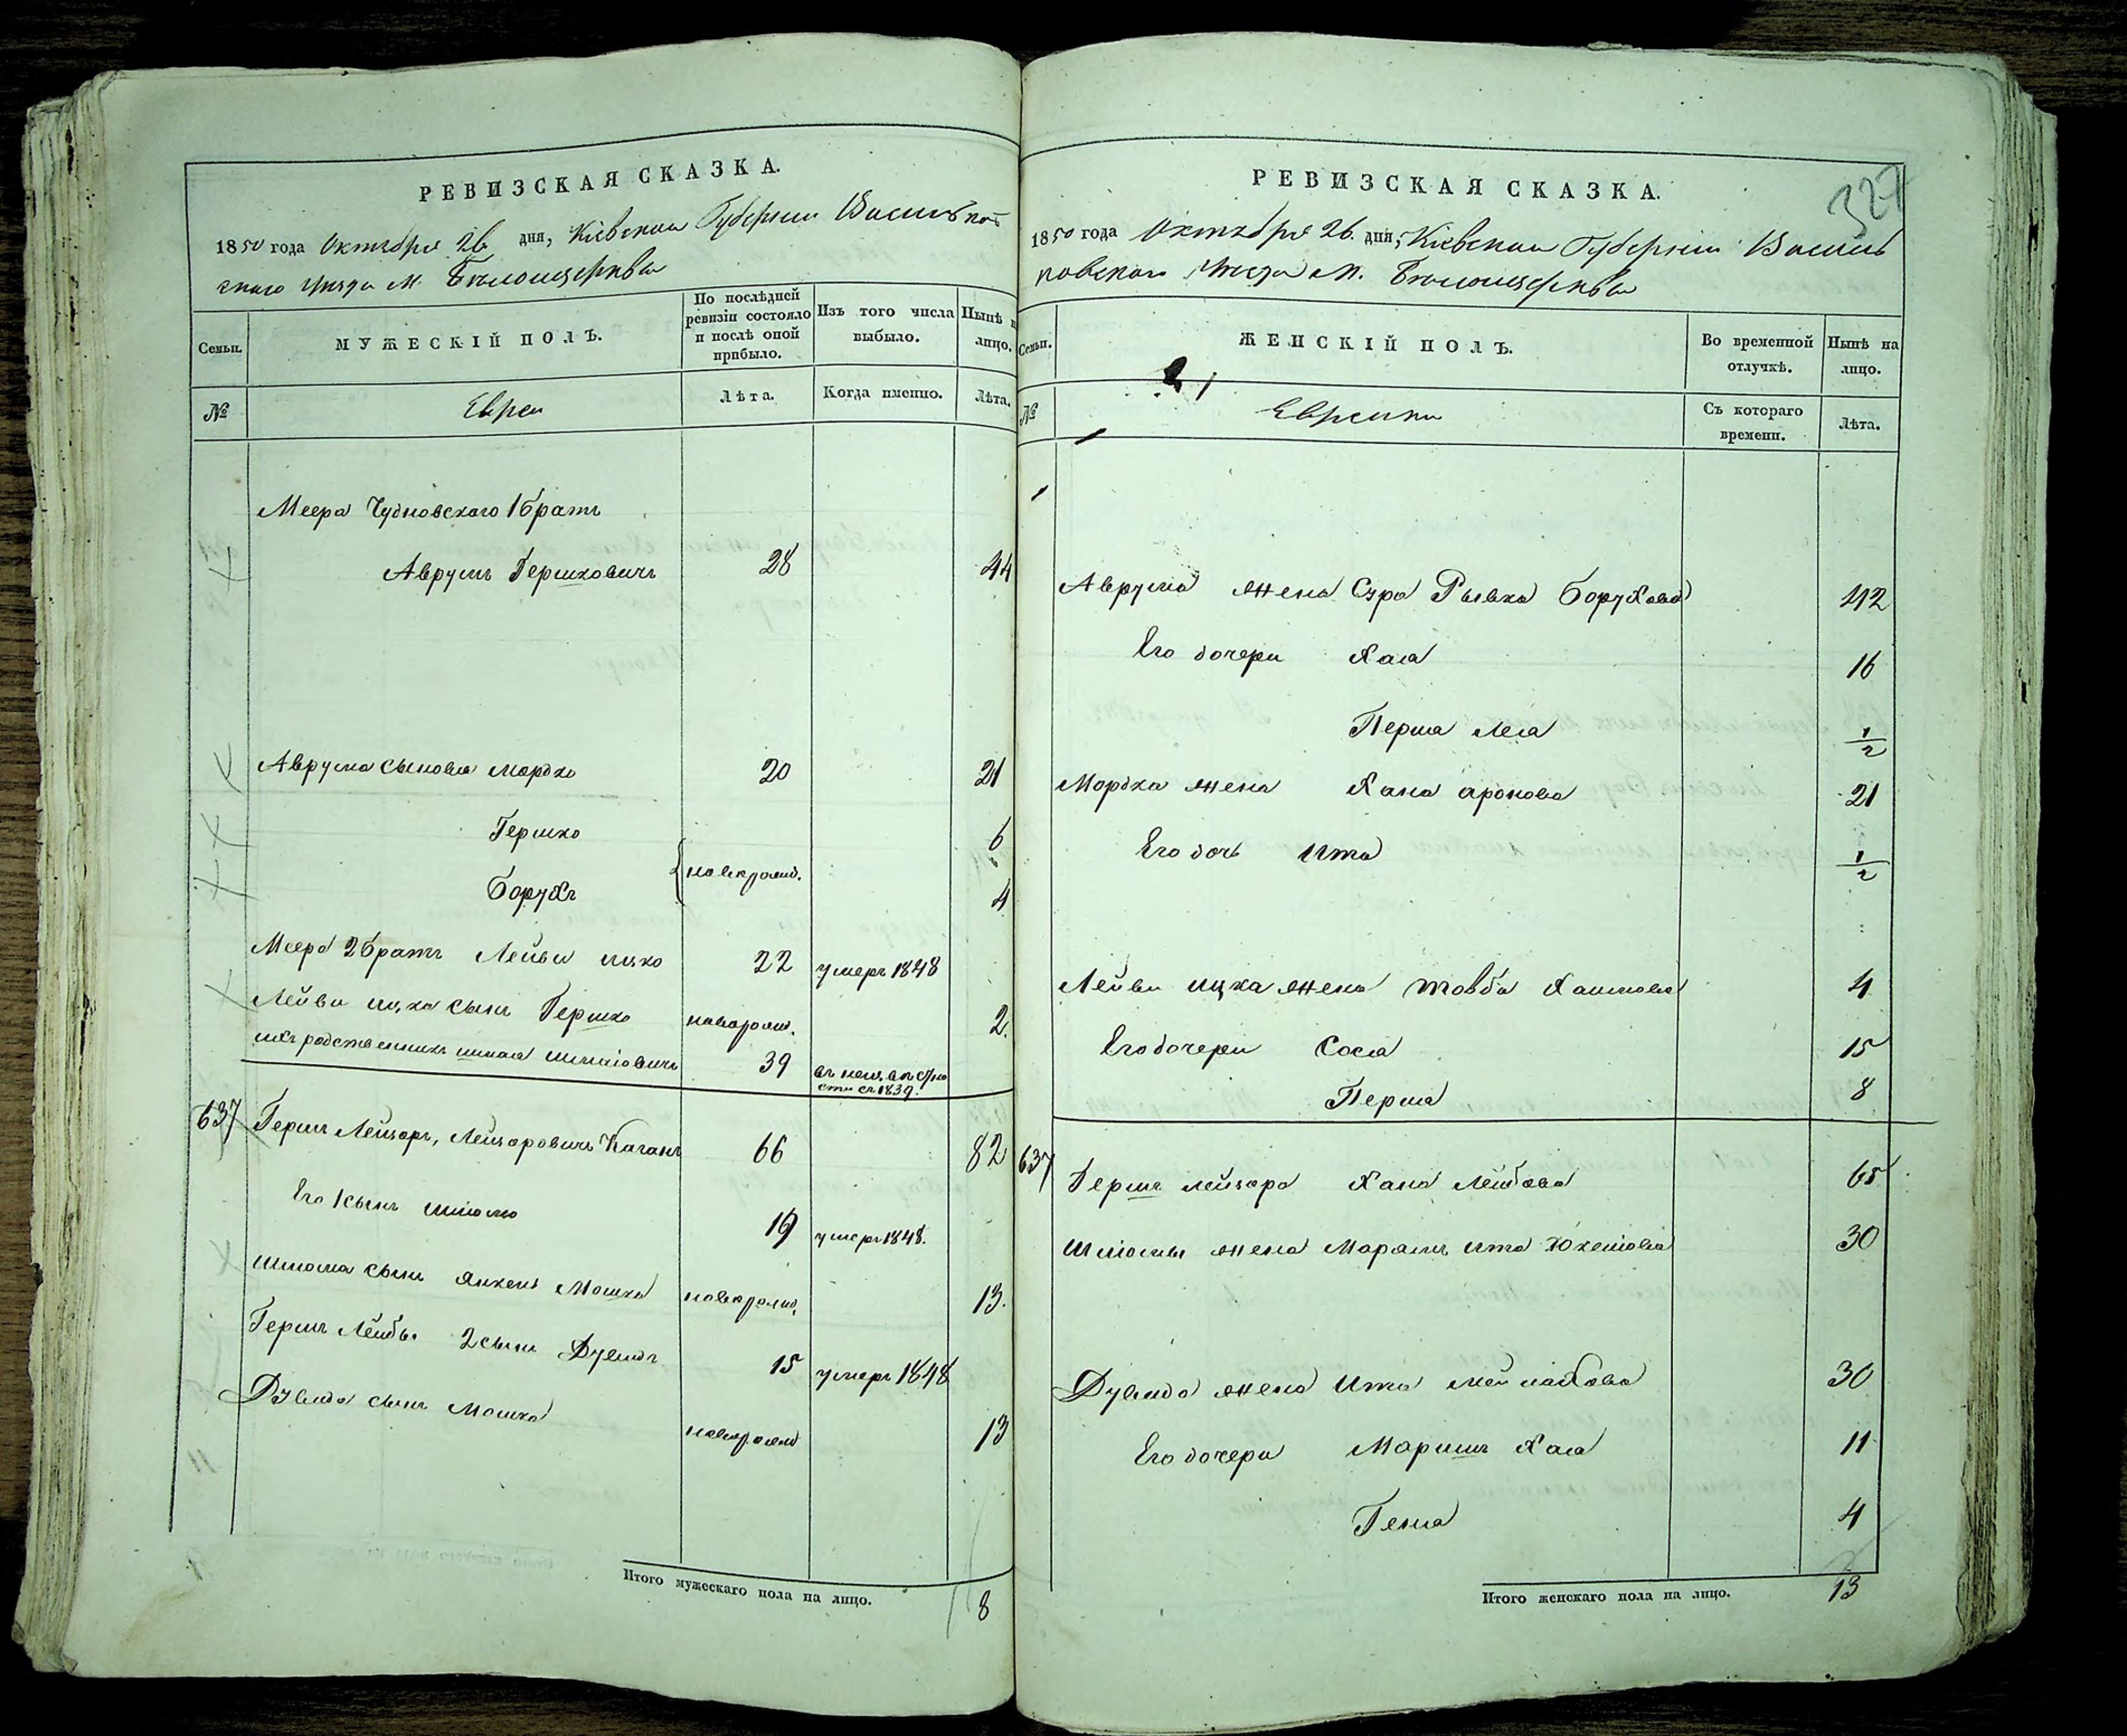 РЕВИЗСКАЯ СКАЗКА.
1850 года Октября 26 дня, Кіевской Губерніи Васильков
скаго уезда м. Белоцерквы
Семьи.
МУЖЕСКІЙ ПОЛЪ.
По послѣдней ревизіи состояло и послѣ оной прибыло.
Изъ того числа выбыло.
Нынѣ на лицо.
№
Евреи
Лѣта.
Когда именно.
Лѣта.
Меера Чудновскаго 1 братъ
Аврумъ Гершковичъ 28 44
Аврума сыновья Мордко 20 21
Гершко 6
новорожд.
Борухъ 4
Меера 2 братъ Лейви Ицко 22 умеръ 1848
Лейви Ицка сынъ Гершко новорожд. 2.
ихъ родственникъ 39 въ неизвѣстно
сти съ 1839.
637 Гершъ Лейзоръ, Лейзоровичъ Каганъ 66 82
Его 1 сынъ Шліома 19 умеръ 1848.
Шліома сынъ Янкель Мошко новорожд. 13.
Гершъ Лейбы 2 сынъ Дувидъ 15 умеръ 1848
Дувида сынъ Мошко новорожд 13
Итого мужескаго пола на лицо. 8
РЕВИЗСКАЯ СКАЗКА.
327
1850 года Октября 26. дня, Кіевской Губерніи Василь
ковскаго уезда м. Белоцерквы
Семьи.
ЖЕНСКІЙ ПОЛЪ.
Во временной отлучкѣ.
Нынѣ на лицо.
№
Еврейки
Съ котораго времени.
Лѣта.
Аврума жена Сура Рывка Борухова 42
Его дочери Хая 16
Перша Лея 1/2
Мордка жена Хана Аронова 21
Его дочь Ита 1/2
Лейви Ицка жена Товба 4
Его дочери Сося 15
Перша 8
637 Гершъ Лейзора Хана Лейбова 65
Шліомы жена Марьямъ Ита 30
Дувида жена Ита 30
Его дочери Маріимъ Хая 11
Геня 4
Итого женскаго пола на лицо. 13